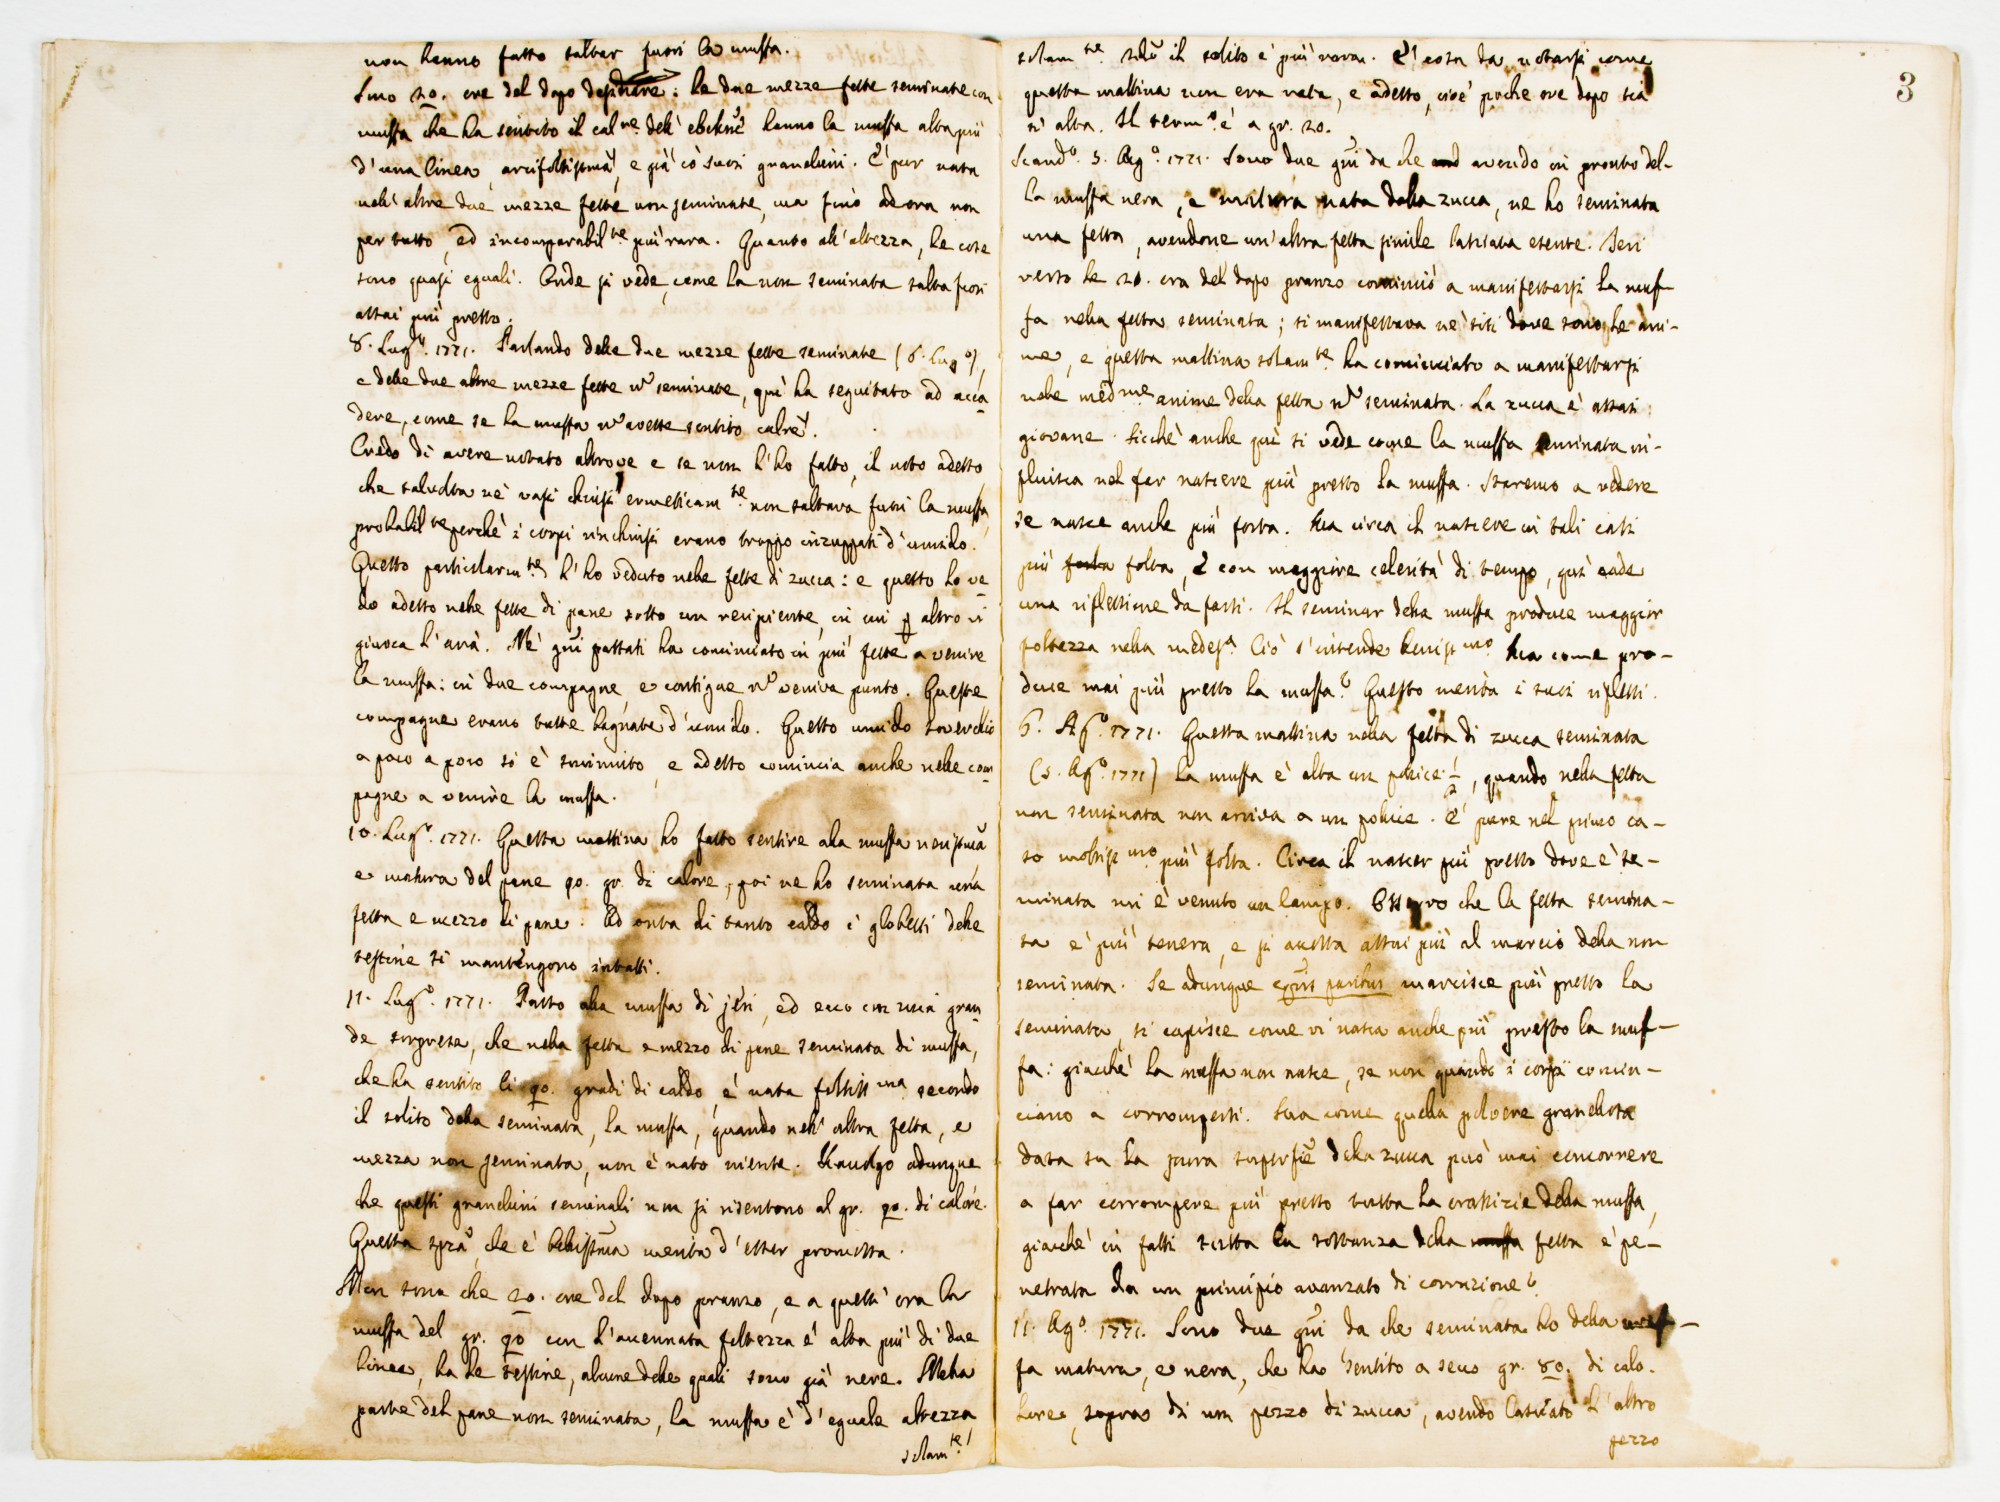 non hanno fatto saltar fuori la muffa.
Sono 20. ore del dopo desinare: le due mezze fette seminate con
muffa che ha sentito il cal.re dell' hanno la muffa alta più
d'una linea, arcifoltissima, e già co' suoi granellini. E' pur nata
nell'altre due mezze fette non seminate, ma fino ad ora non
per tutto, ed incomparabil.te più rara. Quanto all'altezza, le cose
sono quasi eguali. Onde si vede, come la non seminata salta fuori
assai più presto.
8. Lug.o 1771. Parlando delle due mezze fette seminate (6. Lug.o),
e delle due altre mezze fette nō seminate, quì ha seguitato ad acca-
dere, come se la muffa nō avesse sentito calre.
Credo di avere notato altrove e se non l'ho fatto, il noto adesso
che talvolta ne' vasi chiusi ermeticam.te non saltava fuori la muffa
probabil.te perchè i corpi rinchiusi erano troppo inzuppati d'umido.
Questo particolarm.te l'ho veduto nelle fette di zucca: e questo lo ve-
do adesso nelle fette di pane sotto un recipiente, in cui p altro vi
giuoca l'aria. Ne' gni passati ha cominciato in più fette a venire
la muffa: in due compagne e contigue nō veniva punto. Queste
compagne erano tutte bagnate d'umido. Questo umido soverchio
a poco a poco si è sminuito, e adesso comincia anche nelle com-
pagne a venire la muffa.
10. Lug.o 1771. Questa mattina ho fatto sentire alla muffa nerissima
e matura del pane 90. gr. di calore, poi ne ho seminata una
fetta e mezzo di pane. Ad onta di tanto caldo i globetti delle
testine si mantengono intatti.
11. Lug.o 1771. Passo alla muffa di jeri, ed ecco con mia gran-
de sorpresa, che nella fetta e mezzo di pane seminata di muffa,
che ha sentito li 90. gradi di caldo, è nata foltiss.ma secondo
il solito della seminata, la muffa, quando nell'altra fetta, e
mezza non seminata, non è nato niente. Ravolgo adunque
che questi granellini seminali non si risentono al gr. 90. di calore.
Questa spza, che è bellissima merita d'esser promossa.
Non sono che 20. ore del dopo pranzo, e a quest'ora la
muffa del gr. 90 con l'accennata foltezza è alta più di due
linee, ha le testine, alcune delle quali sono già nere. Nella
parte del pane non seminata, la muffa è d'eguale altezza,
solam.te
3
solam.te secō il solito è più rara. E' cosa da notarsi come
questa mattina non era nata, e adesso, cioè poche ore dopo sia
sì alta. Il term.o è a gr. 20.
Scand.o 5. Ag.o 1771. Sono due gni da che avendo in pronto del-
la muffa nera, e matura nata dalla zucca, ne ho seminata
una fetta, avendone un'altra fetta simile lasciata esente. Jeri
verso le 20. ora del dopo pranzo cominciò a manifestarsi la muf-
fa nella fetta seminata; si manifestava ne' siti dove sono le ani-
me, e questa mattina solam.te ha cominciato a manifestarsi
nelle med.me anime della fetta nō seminata. La zucca è assai
giovane. Sicchè anche quì si vede come la muffa seminata in-
fluisca nel far nascere più presto la muffa. Staremo a vedere
se nasce anche più folta. Ma circa il nascere in tali casi
più folta, e con maggiore celerità di tempo, quì cade
una riflessione da farsi. Il seminar della muffa produce maggior
foltezza nella medes.a Ciò s'intende beniss.mo Ma come pro-
duce mai più presto la muffa? Questo merita i suoi riflessi.
6. Ag.o 1771. Questa mattina nella fetta di zucca seminata
(5. Ag.o 1771) la muffa è alta un pollice 1/2, quando nella fetta
non seminata non arriva a un pollice. E' pure nel primo ca-
so moltiss.mo più folta. Circa il nascer più presto dove è se-
minata mi è venuto un lampo. Osservo che la fetta semina-
ta è più tenera, e si accosta assai più al marcio della non
seminata. Se adunque cęteris paribus marcisce più presto la
seminata, si capisce come vi nasca anche più presto la muf-
fa: giacchè la muffa non nasce, se non quando i corpi comin-
ciano a corrompersi. Ma come quella polvere granellosa
data su la pura superficie della zucca può mai concorrere
a far corrompere più presto tutta la crassizie della muffa,
giacchè in fatti tutta la sostanza della muffa fetta è pe-
netrata da un principio avanzato di corruzione?
11. Ag.o 1771. Sono due gni da che seminata ho della muf-
fa matura, e nera, che ha sentito a secco gr. 80. di calo-
lore, sopra di un pezzo di zucca, avendo lasciato l'altro
pezzo